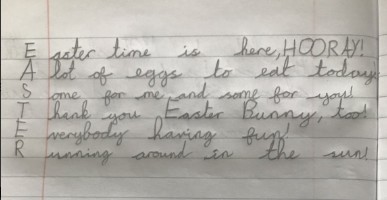 Easter time is here, HOORAY!
A lot of eggs to eat today!
Some for me, and some for you!
Thank you Easter Bunny, too!
Everybody having fun!
Running around in the sun!